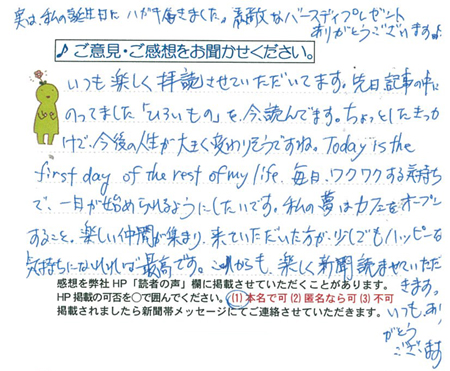 実は、私の誕生日にハガキ届きました。素敵なバースディプレゼント
ありがとうございます♪
♪ご意見・ご感想をお聞かせください。
いつも楽しく拝読させていただいてます。先日記事の中に
のってました「ひろいもの」を、今、読んでます。ちょっとしたきっか
けで、今後の人生が大きく変わりそうですね。Today is the
first day of the rest of my life. 毎日、ワクワクする気持ち
で、一日が始められるようにしたいです。私の夢はカフェをオープン
すること。楽しい仲間が集まり、来ていただいた方が、少しでもハッピーな
気持ちになれれば最高です。これからも、楽しく新聞読ませていただ
きます。
いつも、あり
がとう
ございます
感想を弊社 HP「読者の声」欄に掲載させていただくことがあります。
HP 掲載の可否を○で囲んでください。(1) 本名で可 (2) 匿名なら可 (3) 不可
掲載されましたら新聞帯メッセージにてご連絡させていただきます。